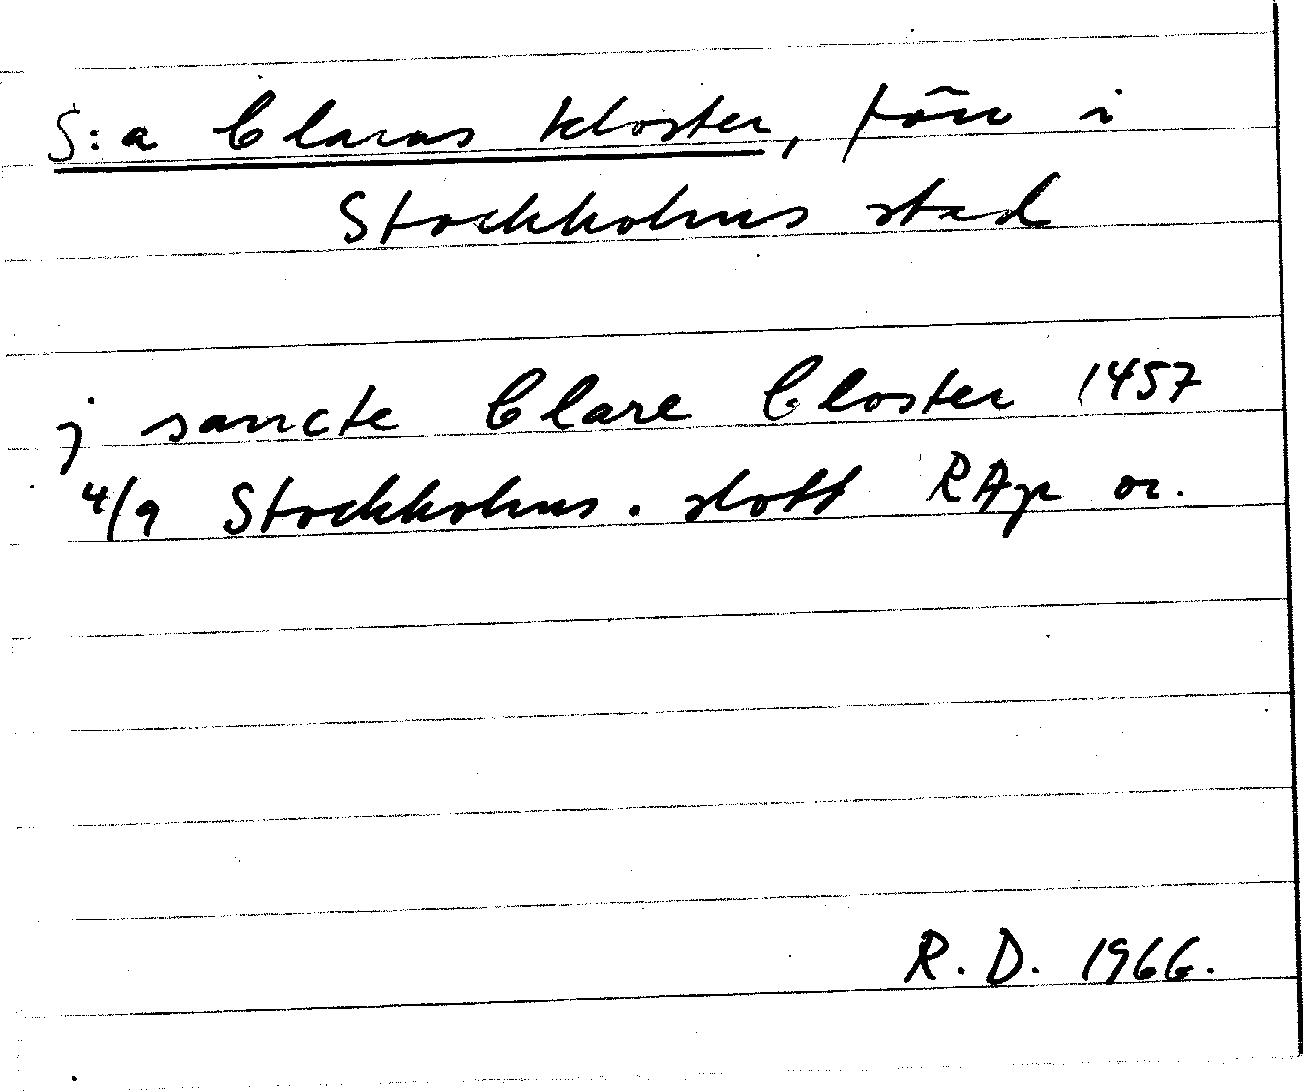 S:a Claras kloster, förr i
Stockholms stad
j sancte Clare Closter 1457
4/9 Stockholms. slott RAp or.
R. D. 1966.